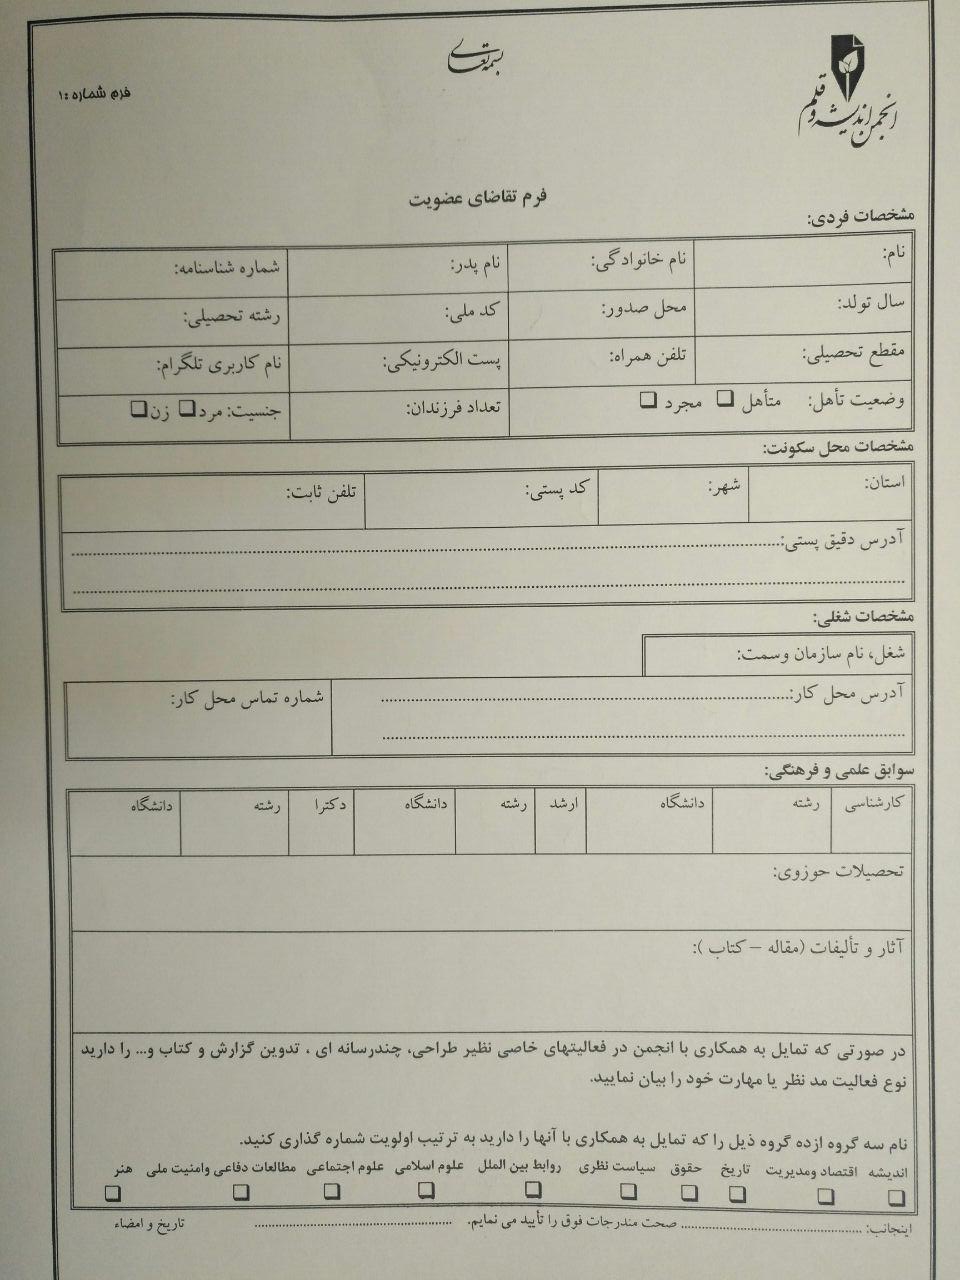 بسمه تعالی
انجمن اندیشه و قلم
فرم شماره :۱
فرم تقاضای عضویت
مشخصات فردی:
نام: نام خانوادگی: نام پدر: شماره شناسنامه:
سال تولد: محل صدور: کد ملی: رشته تحصیلی:
مقطع تحصیلی: تلفن همراه: پست الکترونیکی: نام کاربری تلگرام:
وضعیت تأهل: متأهل ❑ مجرد ❑ تعداد فرزندان: جنسیت: مرد❑ زن❑
مشخصات محل سکونت:
استان: شهر: کد پستی: تلفن ثابت:
آدرس دقیق پستی:
مشخصات شغلی:
شغل، نام سازمان وسمت:
آدرس محل کار: شماره تماس محل کار:
سوابق علمی و فرهنگی:
کارشناسی رشته دانشگاه ارشد رشته دانشگاه دکترا رشته دانشگاه
تحصیلات حوزوی:
آثار و تألیفات (مقاله – کتاب ):
در صورتی که تمایل به همکاری با انجمن در فعالیتهای خاصی نظیر طراحی، چندرسانه ای ، تدوین گزارش و کتاب و... را دارید
نوع فعالیت مد نظر یا مهارت خود را بیان نمایید.
نام سه گروه ازده گروه ذیل را که تمایل به همکاری با آنها را دارید به ترتیب اولویت شماره گذاری کنید.
اندیشه اقتصاد ومدیریت تاریخ حقوق سیاست نظری روابط بین الملل علوم اسلامی علوم اجتماعی مطالعات دفاعی وامنیت ملی هنر
❑ ❑ ❑ ❑ ❑ ❑ ❑ ❑ ❑ ❑
اینجانب: ........................ صحت مندرجات فوق را تأیید می نمایم. ........................ تاریخ و امضاء